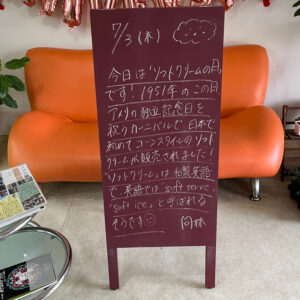 7/3 (木)
今日は「ソフトクリームの日」
です！1951年のこの日、
アメリカ独立記念日を
祝うカーニバルで、日本で
初めてコーンスタイルのソフト
クリームが販売されました！
「ソフトクリーム」は和製英語
で、英語では"soft serve"
"soft ice"と呼ばれる
そうです